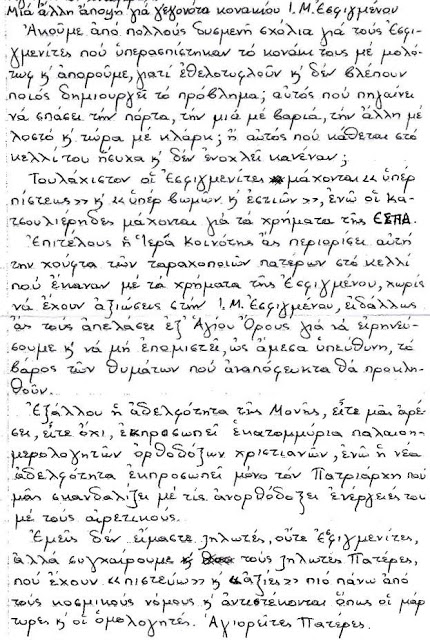 Μιά ἄλλη ἄποψη γιά γεγονότα κονακίου Ἰ.Μ.Ἐσφιγμένου
Ἀκοῦμε ἀπό πολλούς δυσμενῆ σχόλια γιά τούς Ἐσφι-
γμενίτες πού ὑπερασπίστηκαν τό κονάκι τους μέ μολό-
τωφ κ' ἀποροῦμε, γιατί ἐθελοτυφλοῦν κ' δέν βλέπουν
ποιός δημιουργεῖ τό πρόβλημα; αὐτός πού πηγαίνει
νά σπάσει τήν πόρτα, τήν μιά μέ βαριά, τήν ἄλλη μέ
λοστό κ' τώρα μέ κλάρκ; ἤ αὐτός πού κάθεται στό
κελλί του ἥσυχα κ' δέν ἐνοχλεῖ κανέναν;
Τουλάχιστον οἱ Ἐσφιγμενίτες μάχονται «ὑπέρ
πίστεως» κ' «ὑπέρ βωμῶν κ' ἑστιῶν», ἐνῶ οἱ κα-
τσουλιέρηδες μάχονται γιά τά χρήματα τῆς ΕΣΠΑ.
Ἐπιτέλους ἡ Ἱερά Κοινότης ἄς περιορίσει αὐτή
την χούφτα τῶν ταραχοποιῶν πατέρων στό κελλί
πού ἔκαναν μέ τά χρήματα τῆς Ἐσφιγμένου, χωρίς
νά ἔχουν ἀξιώσεις στήν Ἰ.Μ.Ἐσφιγμένου, εἰδάλλως
ἄς τούς ἀπελάσει ἐξ' Ἁγίου Ὄρους γιά νά εἰρηνεύ-
σουμε κ' νά μή ἐπωμιστεῖ, ὡς ἄμεσα ὑπεύθυνη, τό
βάρος τῶν θυμάτων πού ἀναπόφευκτα θά προκλη-
θοῦν.
Ἐξάλλου ἡ ἀδελφότητα τῆς Μονῆς, εἴτε μᾶς ἀρέ-
σει, εἴτε ὄχι, ἐκπροσωπεῖ ἑκατομμύρια παλαιοη-
μερολογητῶν ὀρθοδόξων χριστιανῶν, ἐνῶ ἡ νέα
ἀδελφότητα ἐκπροσωπεῖ μόνο τόν Πατριάρχη πού
μᾶς σκανδαλίζει μέ τίς ἀνορθόδοξες ἐνέργειές του
μέ τούς αἱρετικούς.
Ἐμεῖς δέν εἴμαστε ζηλωτές, οὔτε Ἐσφιγμενίτες,
ἀλλά συγχαίρουμε κ' τούς ζηλωτές Πατέρες,
πού ἔχουν «πιστεύω» κ' «ἀξίες» πιό πάνω ἀπό
τούς κοσμικούς νόμους κ' ἀντιστέκονται ὅπως οἱ μάρ
τυρες κ' οἱ ὁμολογητές. Ἁγιορεῖτες Πατέρες.